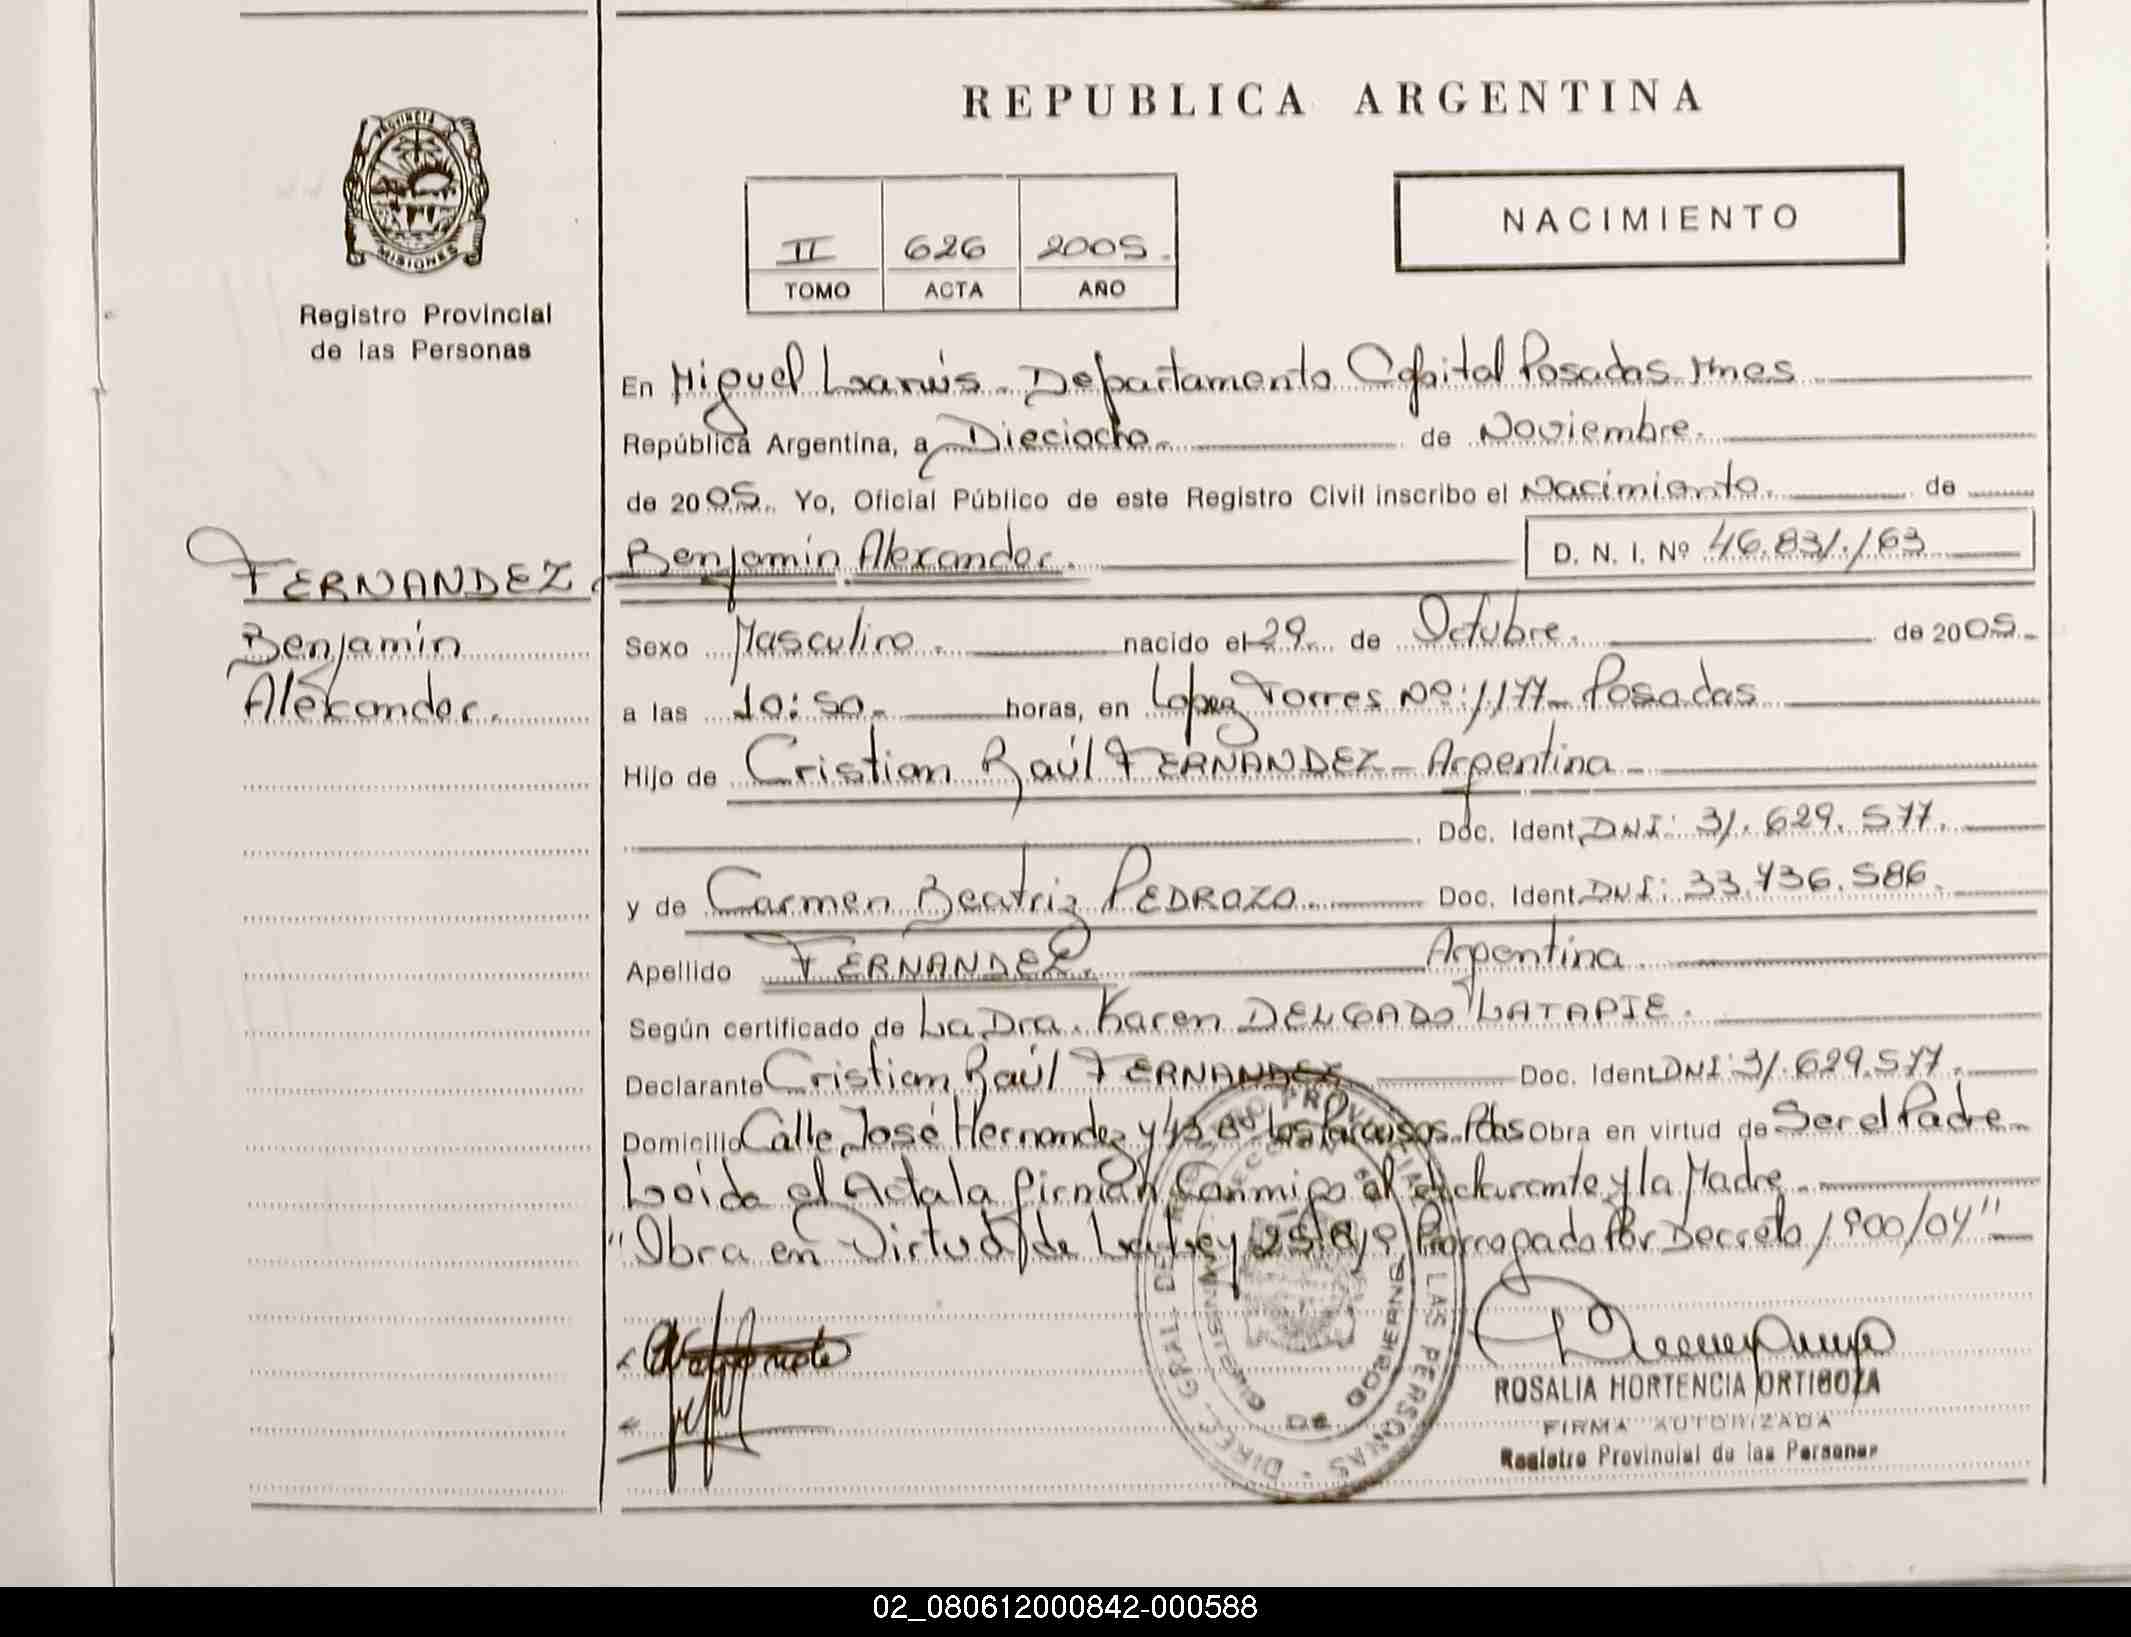 REPUBLICA ARGENTINA
PROVINCIA
MISIONES
Registro Provincial
de las Personas
II 626 2005.
TOMO ACTA AÑO
NACIMIENTO
En Miguel Lanús - Departamento Capital Posadas Mnes
República Argentina, a Dieciocho. de Noviembre.
de 2005. Yo, Oficial Público de este Registro Civil inscribo el Nacimiento. de
FERNANDEZ.
Benjamín
Alexander.
Benjamín Alexander. D. N. I. Nº 46.831.163
Sexo Masculino. nacido el 29 de Octubre. de 2005.
a las 10:50. horas, en Lopez Torres Nº: 1177 - Posadas
Hijo de Cristian Raúl FERNANDEZ - Argentina
Doc. Ident. DNI: 31.629.577.
y de Carmen Beatriz PEDROZO. Doc. Ident. DNI: 33.736.586.
Apellido FERNANDEZ. Argentina.
Según certificado de La Dra. Karen DELGADO LATAPIE.
Declarante Cristian Raúl FERNANDEZ Doc. Ident. DNI: 31.629.577.
Domicilio Calle José Hernandez y Obra en virtud de Ser el Padre
Leida el Acta la firman Conmigo el declarante y la Madre.
"Obra en Virtud de La Ley Prorrogado Por Decreto 1900/04"
DIREC. GRAL. DEL REGISTRO PROVINCIAL DE LAS PERSONAS
MINISTERIO DE GOBIERNO
ROSALIA HORTENCIA ORTIGOZA
FIRMA AUTORIZADA
Registro Provincial de las Personas
02_080612000842-000588